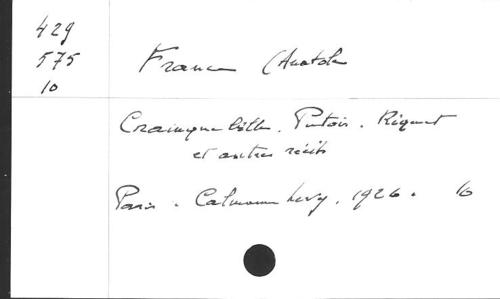 429
575
10
France (Anatole
Crainquebille. Putois. Riquet
et autres récits
Paris. Calmann Levy. 1926. 16